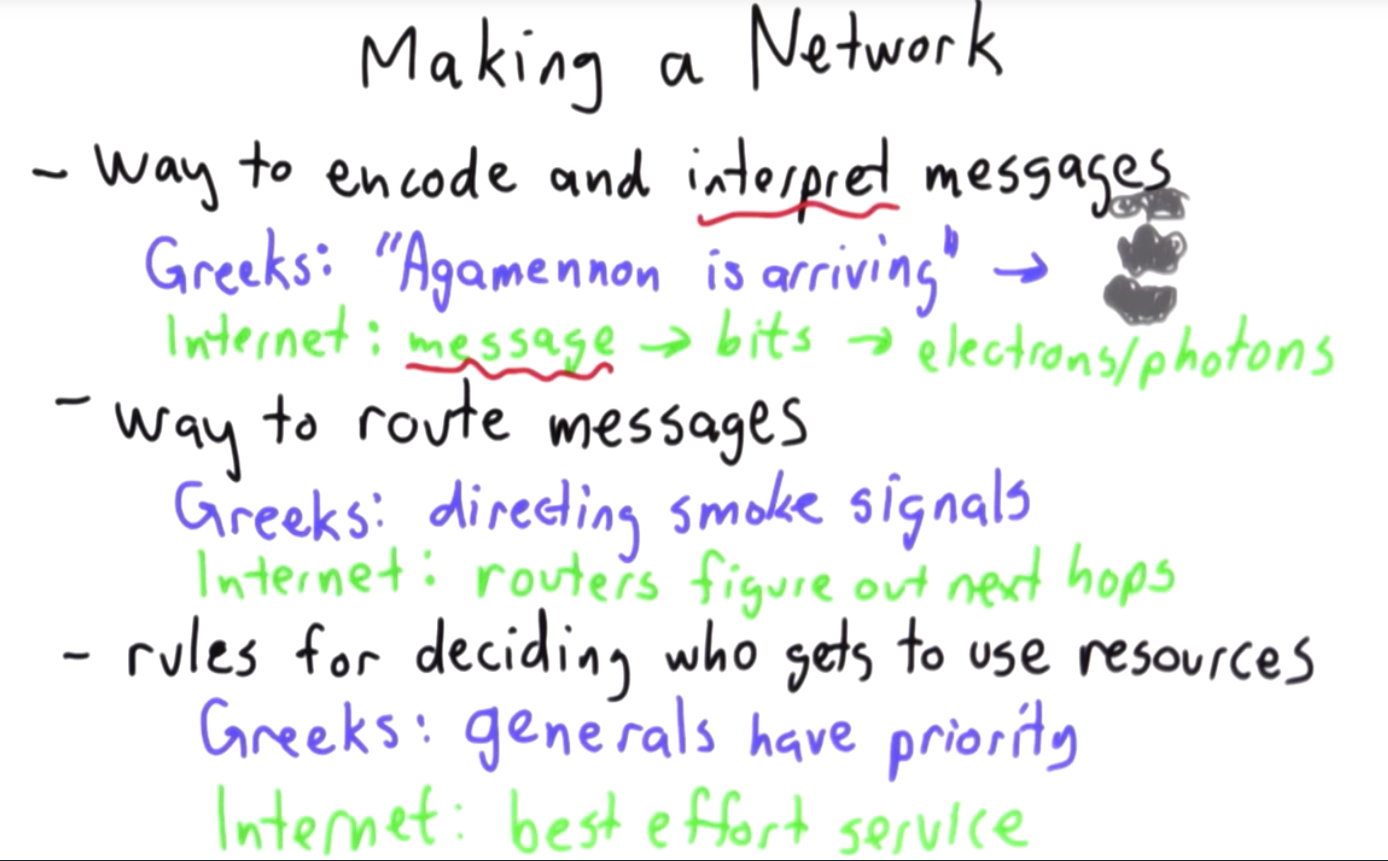 Making a Network
- way to encode and interpret mesgages
Greeks: "Agamennon is arriving" →
Internet: message → bits → electrons/photons
- way to route messages
Greeks: directing smoke signals
Internet: routers figure out next hops
- rules for deciding who gets to use resources
Greeks: generals have priority
Internet: best effort service